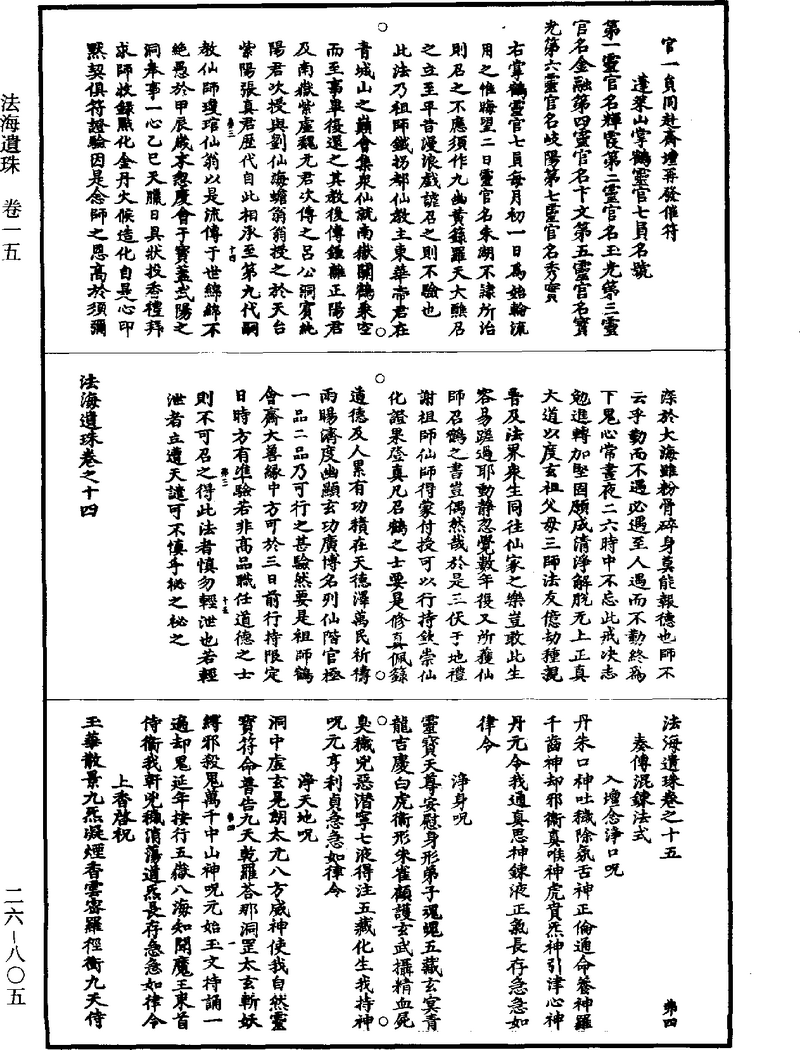 官一員同赴齋壇再發催符
蓬萊山掌鶴靈官七員名號
第一靈官名輝霞第二靈官名玉光第三靈
官名金融第四靈官名卞文第五靈官名寶
光第六靈官名岐陽第七靈官名秀寶
右掌鶴靈官七員每月初一日爲始輪流
用之惟晦望二日靈官名朱湖不隷所治
則召之不應須作九幽黃籙羅天大醮召
之立至平昔漫浪戲謔召之則不驗也
此法乃祖師鐵拐都仙教主東華帝君在
青城山之巔會集衆仙就南嶽關鶴乘空
而至事畢復還之其教後傳鍾離正陽君
及南嶽紫虛魏元君次傳之呂公洞賓純
陽君次授與劉仙海蟾翁翁授之於天台
紫陽張真君歷代自此相承至第九代嗣
教仙師瓊琯仙翁以是流傳于世綿綿不
絕愚於甲辰歲本忽度會于寶蓋武陽之
洞奉事一心乙巳天臘日具狀投香禮拜
求師收録點化金丹火候造化自是心印
默契俱符證驗因是念師之恩高於須彌
深於大海雖粉骨碎身莫能報德也師不
云乎勤而不遇必遇至人遇而不勤終爲
下鬼心常晝夜二六時中不忘此戒次志
勉進轉加堅固願成清淨解脫无上正真
大道以度玄祖父母三師法友億劫種親
普及法界衆生同往仙家之樂豈敢此生
容易蹉過耶動静忽覺數年後又所獲仙
師召鶴之書豈偶然哉於是三伏于地禮
謝祖師仙師得蒙付授可以行持欽崇仙
化證果登真凡召鶴之士要是修真佩籙
道德及人累有功積在天德澤萬民祈禱
雨暘濟度幽顯玄功廣博名列仙階官極
一品二品乃可行之甚驗然要是祖師鶴
會齋大善緣中方可於三日前行持限定
日時方有準驗若非高品職任道德之士
則不可召之得此法者慎勿輕泄也若輕
泄者立遭天譴可不慎乎秘之秘之
法海遺珠卷之十四
法海遺珠卷之十五
奏傳混鍊法式
入壇念淨口呪
丹朱口神吐穢除氛舌神正倫通命養神羅
千齒神却邪衛真喉神虎賁炁神引津心神
丹元令我通真思神鍊液正氣長存急急如
律令
淨身呪
靈寶天尊安慰身形弟子魂魄五藏玄冥青
龍吉慶白虎衛形朱雀顧護玄武攝精血屍
臭穢兇惡潛寧七液得注五藏化生我持神
呪元亨利貞急急如律令
淨天地呪
洞中虛玄晃朗太元八方威神使我自然靈
寶符命普告九天乾羅答那洞罡太玄斬妖
縛邪殺鬼萬千中山神呪元始玉文持誦一
遍却鬼延年按行五嶽八海知聞魔王束首
侍衛我軒兇穢消蕩道炁長存急急如律令
上香啓祝
玉華散景九炁凝煙香雲密羅徑衝九天侍
法海遺珠 卷一五
二六—八〇五
第三
十四
第三
十五
第四
一
第四